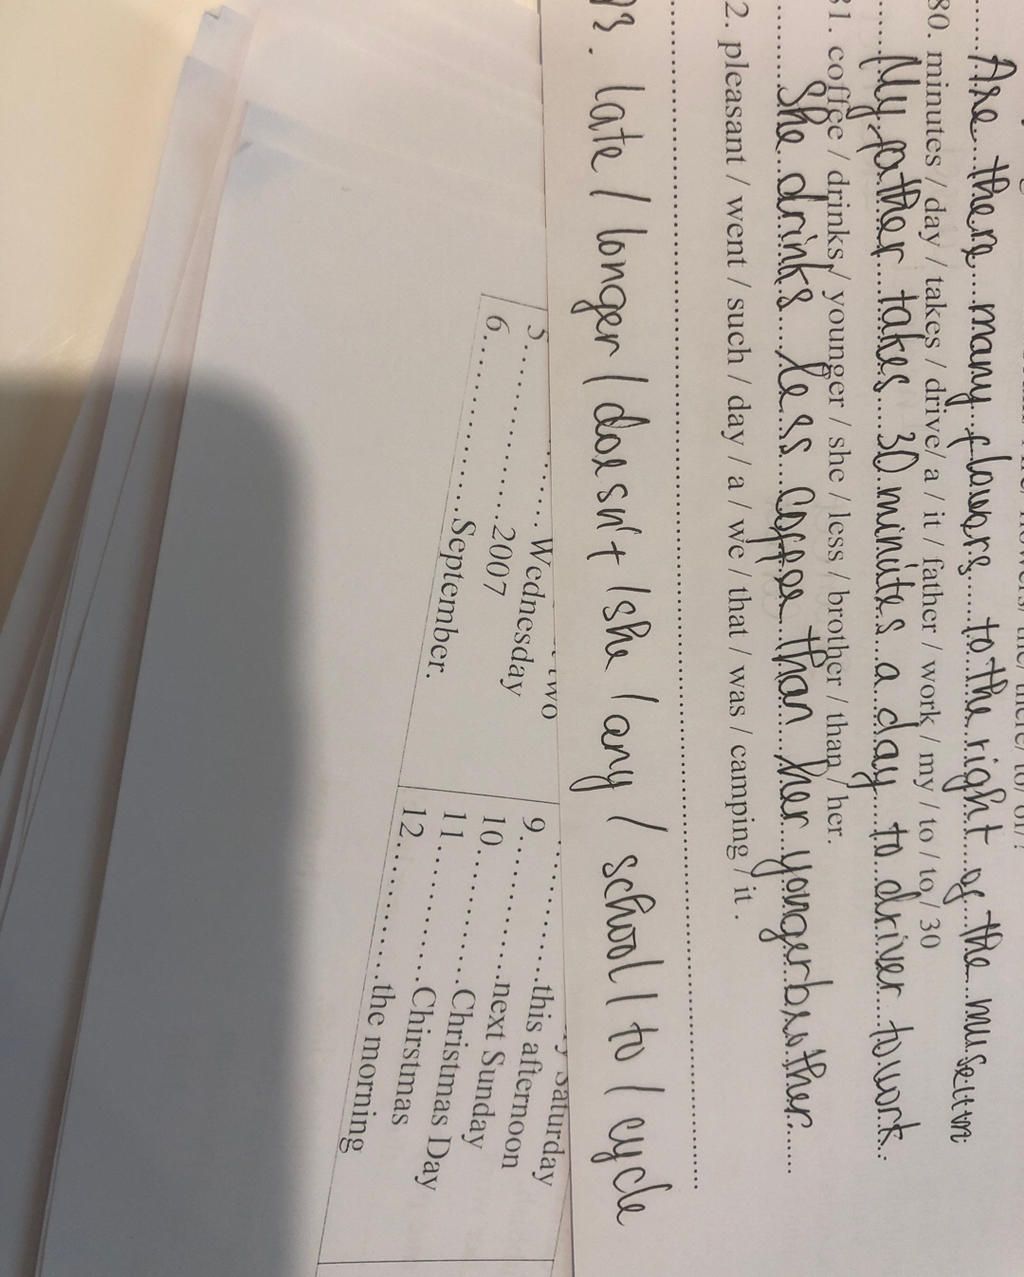 Are there many flowers to the right of the museum
80. minutes / day / takes / drive/ a / it / father / work / my / to / to / 30
My father takes 30 minutes a day to driver to work.
31. coffee / drinks / younger / she / less / brother / than / her.
She drinks less coffee than her younger brother.
2. pleasant / went / such / day / a / we / that / was / camping / it .
93. late / longer / doesn't / she / any / school / to / cycle
two
5............Wednesday
6............2007
............September.
Saturday
9............this afternoon
10............next Sunday
11............Christmas Day
12............Chirstmas
the morning